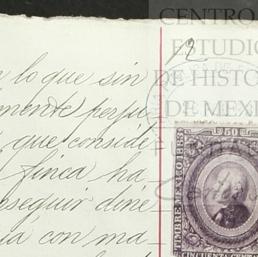 CENTRO
ESTUDIO
DE HISTOR
DE MEXI
2
n lo que sin
mente perju
que conside
finca ha
seguir dine
la con ma
50
TIMBRE MEXICO 188
CINCUENTA CENTA